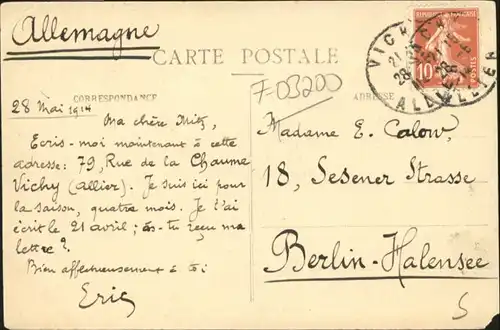 Allemagne
CARTE POSTALE
F-03200
CORRESPONDANCE
ADRESSE
28 Mai 1914
Ma chère Mitz,
Ecris-moi maintenant à cette
adresse: 79, Rue de la Chaume
Vichy (allier). Je suis ici pour
la saison, quatre mois. Je t'ai
écrit le 21 avril; as-tu reçu ma
lettre?
Bien affectueusement à toi
Eric
REPUBLIQUE FRANÇAISE
10
POSTES
VICHY
ALLIER
Madame E. Calow,
18, Sesener Strasse
Berlin-Halensee
5